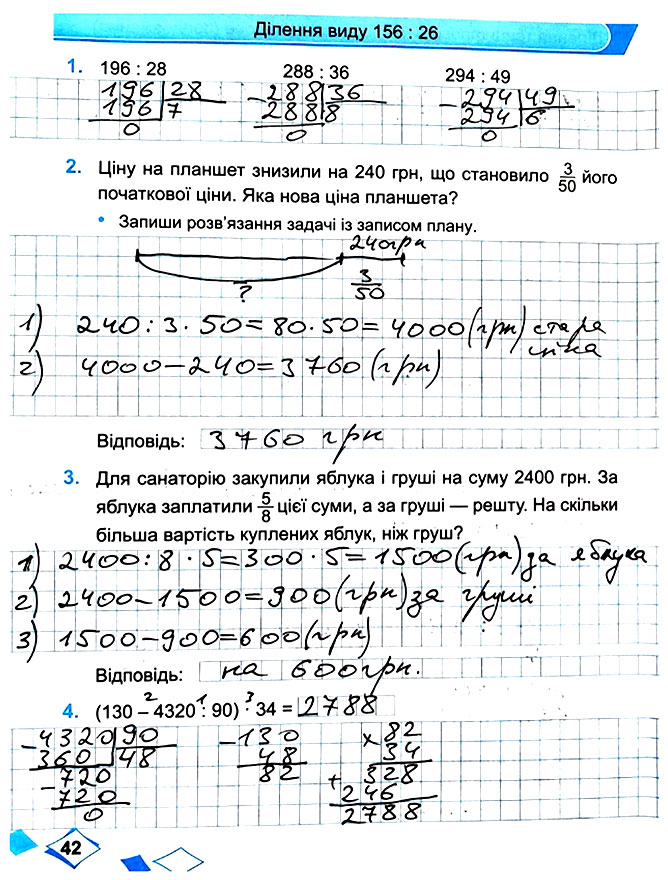 Ділення виду 156 : 26
1. 196 : 28 288 : 36 294 : 49
196 28 - 288 36 - 294 49
196 7 288 8 294 6
0 0 0
2. Ціну на планшет знизили на 240 грн, що становило 3/50 його
початкової ціни. Яка нова ціна планшета?
• Запиши розв'язання задачі із записом плану.
240грн
? 3/50
1) 240 : 3 · 50 = 80 · 50 = 4000 (грн) стара
ціна
2) 4000 – 240 = 3760 (грн)
Відповідь: 3760 грн
3. Для санаторію закупили яблука і груші на суму 2400 грн. За
яблука заплатили 5/8 цієї суми, а за груші — решту. На скільки
більша вартість куплених яблук, ніж груш?
1) 2400 : 8 · 5 = 300 · 5 = 1500 (грн) за яблука
2) 2400 – 1500 = 900 (грн) за груші
3) 1500 – 900 = 600 (грн)
Відповідь: на 600грн.
2 1 3
4. (130 – 4320 : 90) · 34 = 2788
- 4320 90 - 130 × 82
360 48 48 34
- 720 82 + 328
720 246
0 2788
42